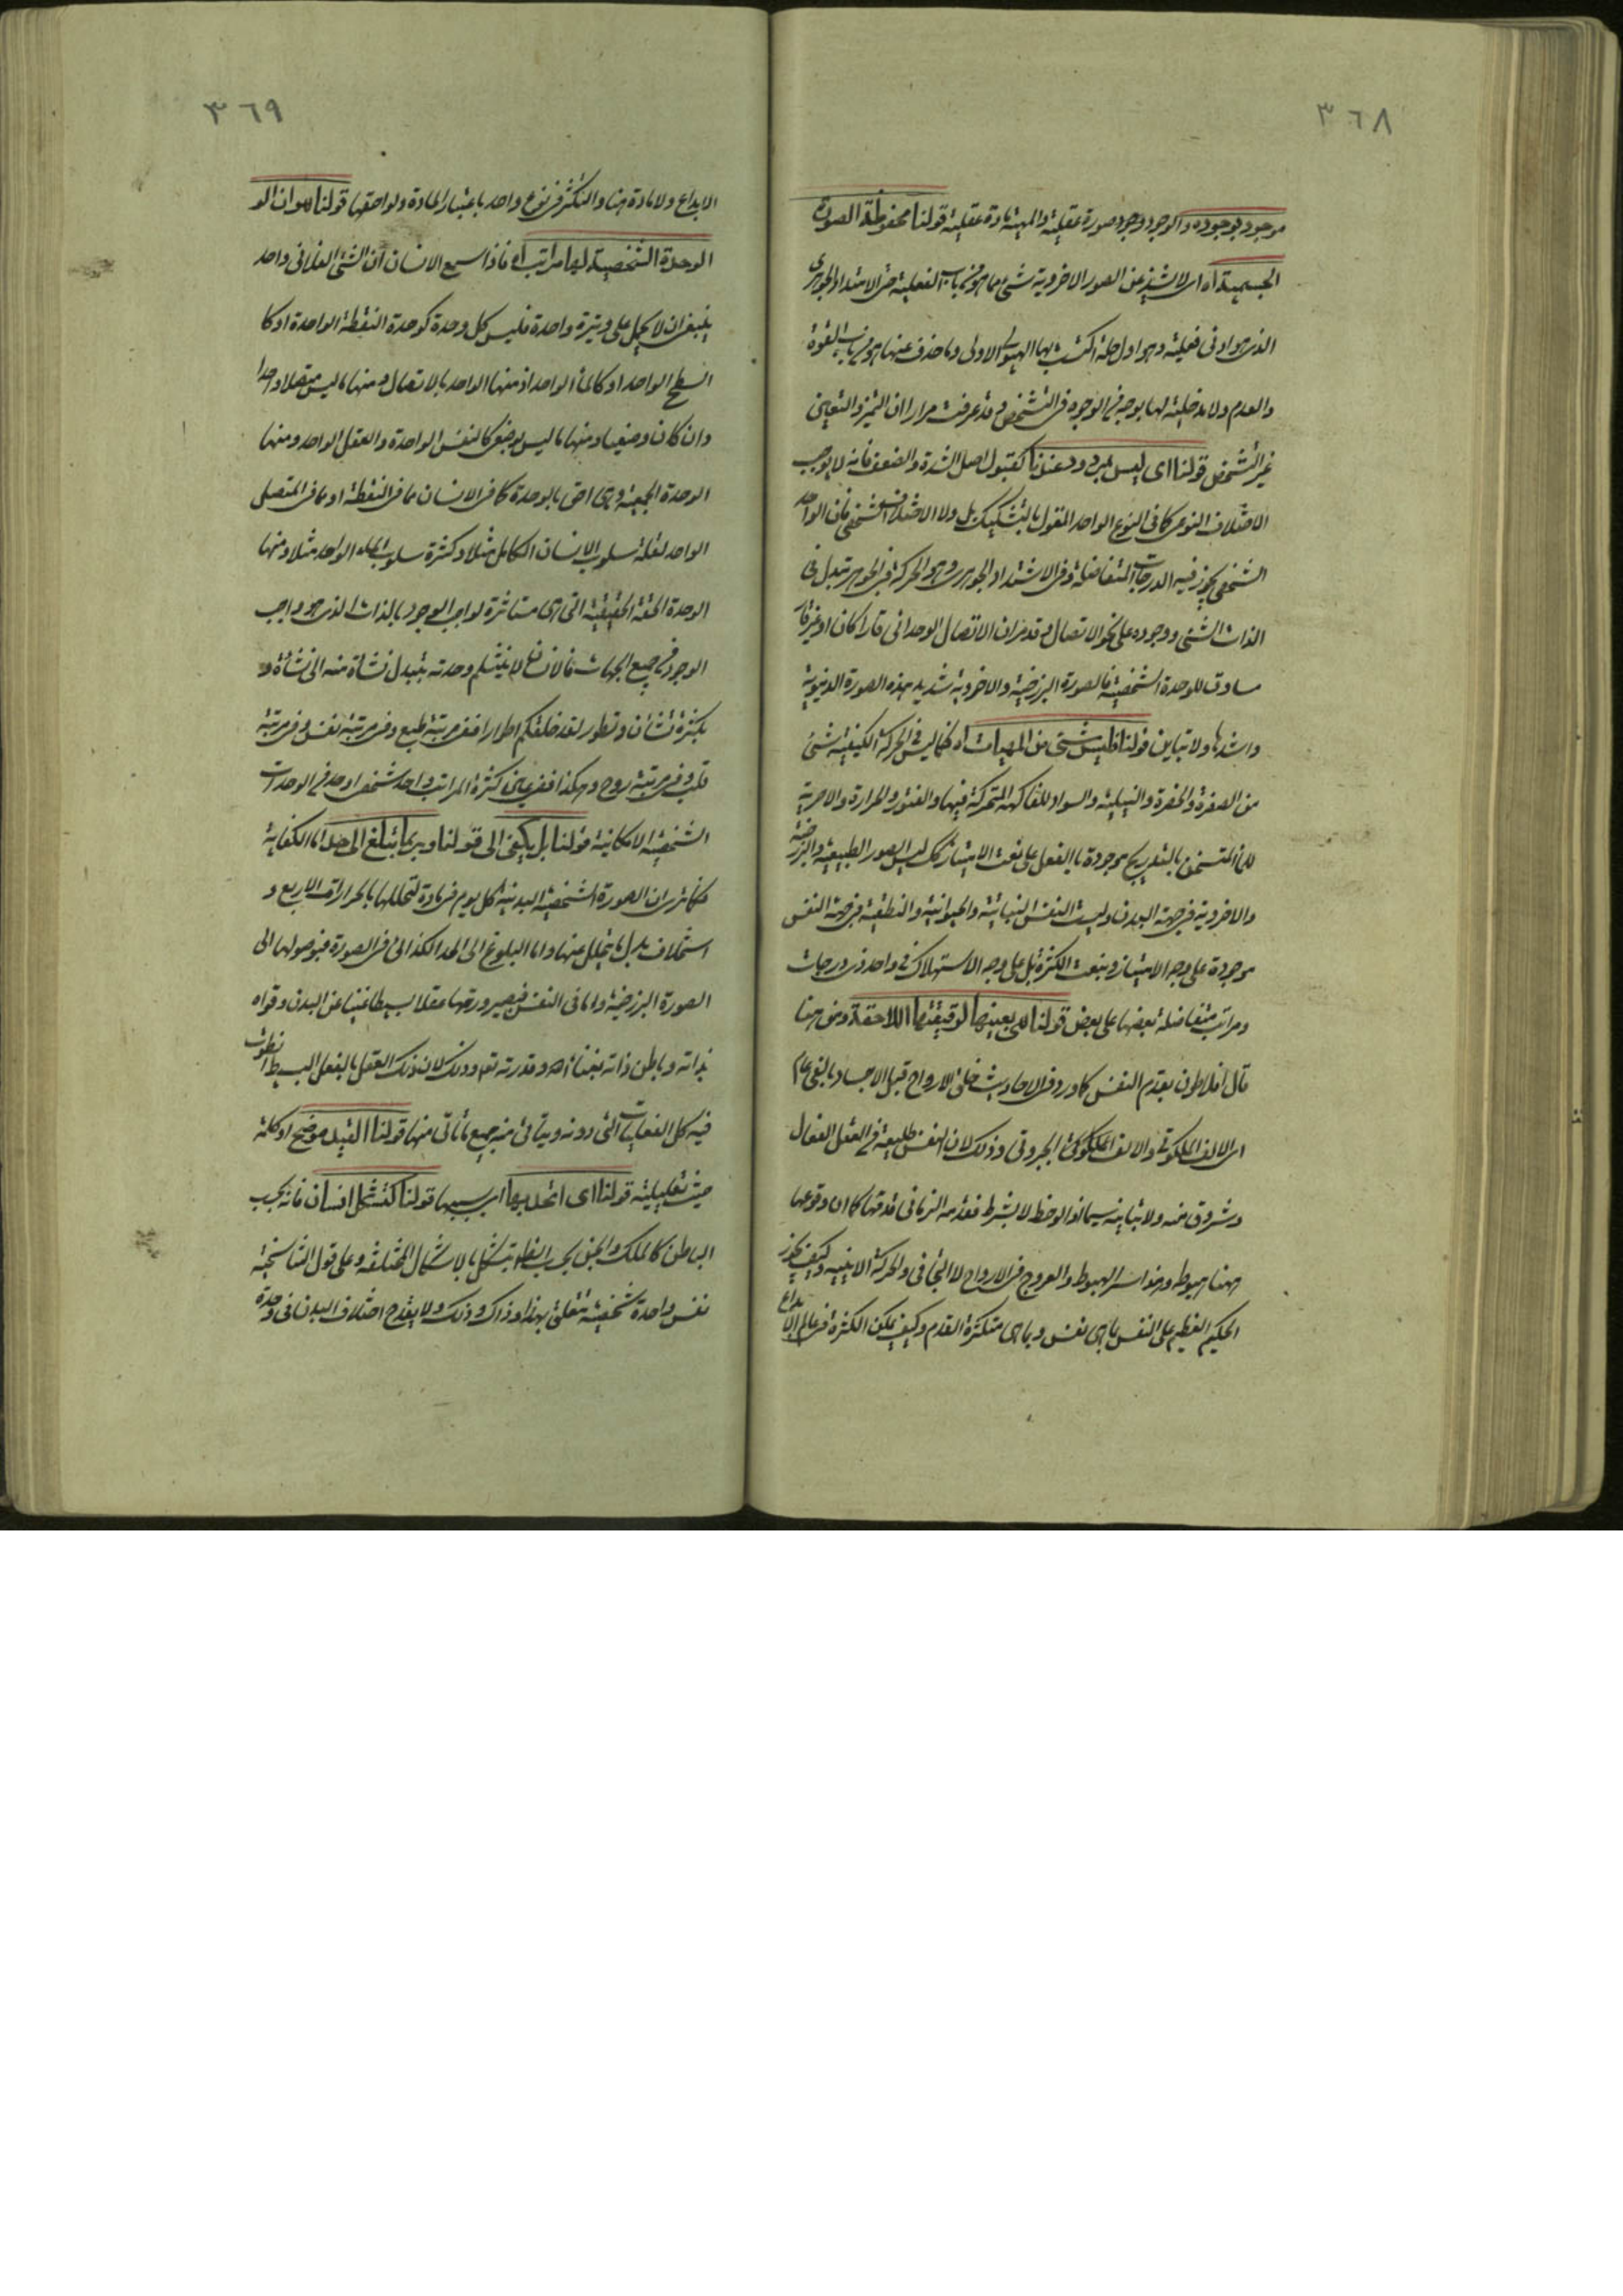 ٣٦٨
موجود بوجوده والوجود وجود صورة عقلية والمهية مادة عقلية قولنا محفوظة الصورة
الجسمية اه اى لا يشذ عن الصور الاخروية شىء مما هو من باب الفعلية حتى الامتداد الجوهرى
الذى هو ادنى فعلية وهو اول حلة اكتست بها الهيولى الاولى وما حذف عنها هو من باب القوة
والعدم ولا مدخلية لها بوجه من الوجوه فى التشخص وقد عرفت مرارا ان التميز والتعين
غير التشخص قولنا اى ليس لمى وودعنا كقبول اصل الشدة والضعف فانه لا يوجب
الاختلاف النوعى كما فى النوع الواحد المقول بالتشكيك بل ولا الاختلاف الشخصى فان الواحد
الشخصى يجوز فيه الدرجات المتفاضلة وفى الاشتداد الجوهرى وهو الحركة فى الجوهر تبدل فى
الذات الشىء ووجوده على نحو الاتصال وقد مر ان الاتصال الوحدانى قارا كان او غير قار
مساوق للوحدة الشخصية فالصورة البرزخية والاخروية شديد هذه الصورة الدنيوية
واشدها ولا تباين قولنا وليس شىء من المهيات اه فكما ليس فى الحركة الكيفية شىء
من الصفرة والخضرة والنيلية والسواد للفاكهة المتحركة فيها والفتور والحرارة والاحرية
للماء المتسخن بالتدريج موجودة بالفعل على نعت الامتياز كك ليس الصور الطبيعية والبرزخية
والاخروية فى جهة البدن وليست النفس النباتية والحيوانية والنطقية فى جهة النفس
موجودة على وجه الامتياز وبنعت الكثرة بل على وجه الاستهلاك فى واحد ذى درجات
ومراتب متفاضلة بعضها على بعض قولنا هى بعينها لوقيقتها اللاحقة ومن هنا
قال افلاطون بقدم النفس كما ورد فى الاحاديث خلق الارواح قبل الاجساد بالفى عام
اى الالف الملكوتى والالف الملكوتى الجبروتى وذلك لان النفس طليعة من العقل الفعال
وشروق منه ولا تباينه سيما لو لوحظ لا بشرط فقدمه الزمانى قدمها كما ان وقوعها
ههنا هبوطه وهذا سر الهبوط والعروج فى الارواح لا التجافى والحركة الاينية وكيف يجوز
الحكيم العظيم على النفس بما هى نفس وبما هى متكثرة القدم وكيف يمكن الكثرة فى عالم الابداع
٣٦٩
الابداع ولا مادة هنا والتكثر فى نوع واحد باعتبار المادة ولواحقها قولنا هو ان الو
الوحدة الشخصية لها مراتب اه فاذا سمع الانسان ان الشىء الفلانى واحد
ينبغى ان لا يحمل على وتيرة واحدة فليس كل وحدة كوحدة النقطة الواحدة او كا
السطح الواحد او كالماء الواحد اذ منها الواحد بالاتصال ومنها ما ليس متصلا واحدا
وان كان وضعيا ومنها ما ليس بوضعى كالنفس الواحدة والعقل الواحد ومنها
الوحدة الجمعية وهى احق بالوحدة كما فى الانسان مما فى النقطة او مما فى المتصل
الواحد لقلة سلوب الانسان الكامل مثلا وكثرة سلوب الماء الواحد مثلا ومنها
الوحدة الحقة الحقيقية التى هى مستاثرة لواجب الوجود بالذات الذى هو واجب
الوجود من جميع الجهات فالانسان لا ينثلم وحدته بتبدل نشاة منه الى نشاة و
بكثرة تشأن وتطور لقد خلقكم اطوارا ففى مرتبة طبع وفى مرتبة نفس وفى مرتبة
قلب وفى مرتبة روح وهكذا ففى عين كثرة المراتب واحد شخص اوحد من الوحدات
الشخصية الامكانية قولنا بل يكفى الى قولنا وربما تبلغ الى حد اما الكفاية
فكما ترى ان الصورة الشخصية البدنية كل يوم فى مادة لتحللها بالحرارات الاربع و
استخلاف بدل ما يتحلل عنها واما البلوغ الى الحد الكذائى فى الصورة فبوصولها الى
الصورة البرزخية واما فى النفس فبصيرورتها عقلا بسيطا غنيا عن البدن وقواه
بذاته وباطن ذاته بغناء الله وقدرته تعم وذلك لان ذلك العقل بالفعل البسيط انطوت
فيه كل الفعليات التى دونه ويتاتى منه جميع ما تاتى منها قولنا القيد موضح او كلمة
حيث تعليلية قولنا اى اتحد بها اى بسببها قولنا كتشكل انسان فانه بحسب
الباطن كالملك والجن بحسب الظاهر يتشكل بالاشكال المختلفة وعلى قول التناسخية
نفس واحدة شخصية تتعلق بهذا وذاك وذلك ولا يقدح اختلاف البدن فى وحدة